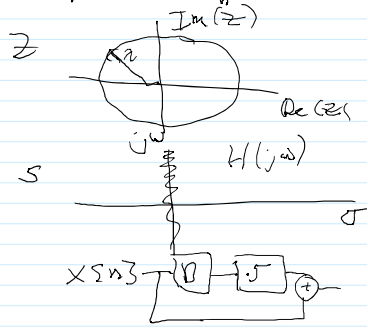 Im(z)
Z
r
Re(z)
jω
H(jω)
S
σ
X[n]
D
.5
+